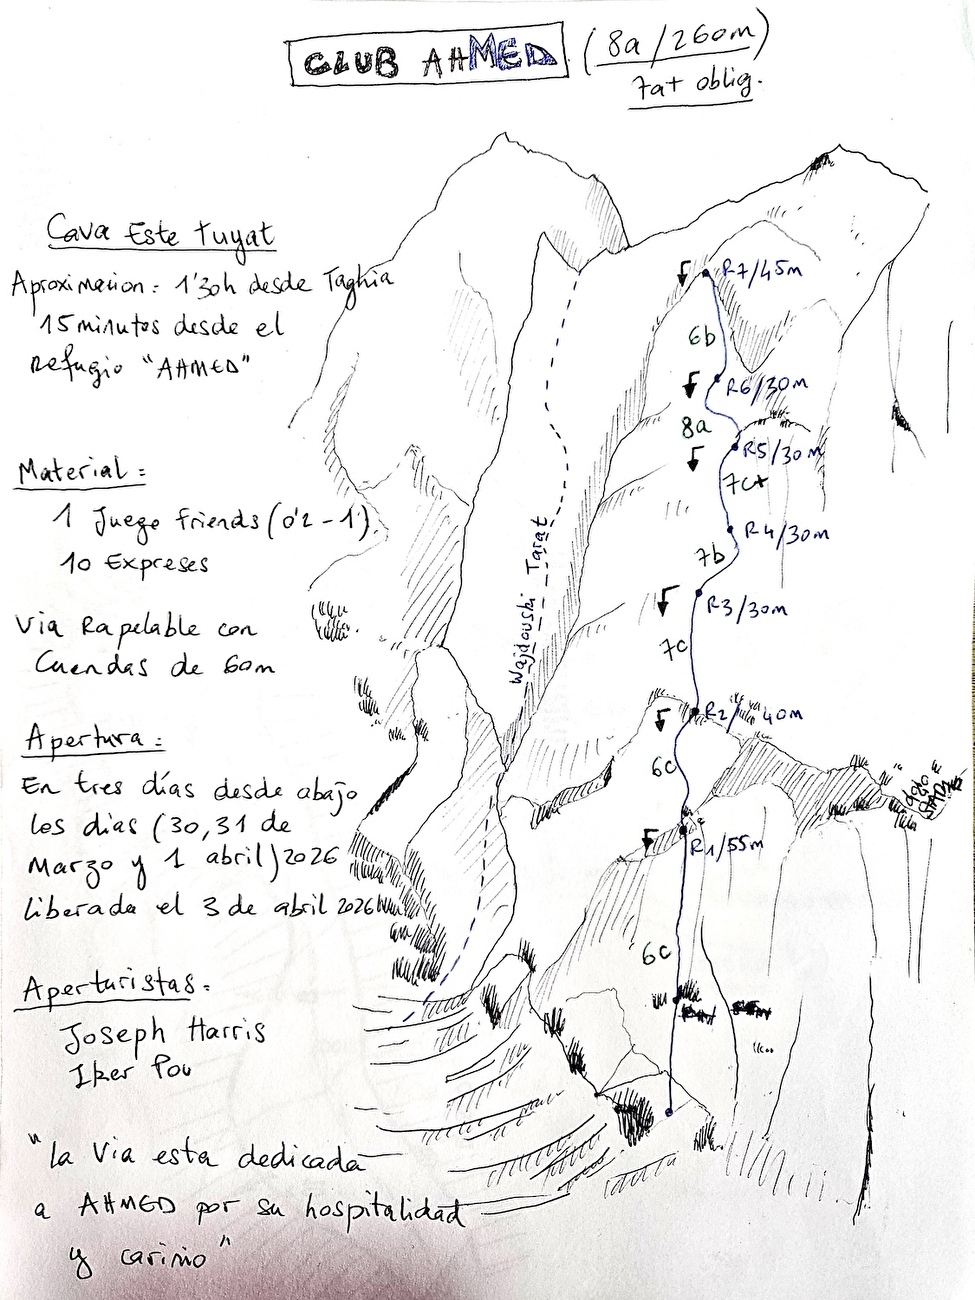 CLUB AHMED (8a/260m)
7a+ oblig.
Cava Este tuyat
Aproximacion: 1'30h desde Taghia
15 minutos desde el
Refugio "AHMED"
Material:
1 Juego friends (0'2-1)
10 Expreses
Via Rapelable con
Cuerdas de 60m
Apertura:
En tres días desde abajo
los dias (30,31 de
Marzo y 1 abril) 2026
liberada el 3 de abril 2026
Aperturistas:
Joseph Harris
Iker Pou
"la Via esta dedicada
a AHMED por su hospitalidad
y cariño"
Wajdouski Tarat
R7/45m
6b
R6/30m
8a
R5/30m
7c+
R4/30m
7b
R3/30m
7c
R2/40m
6c
R1/55m
6c